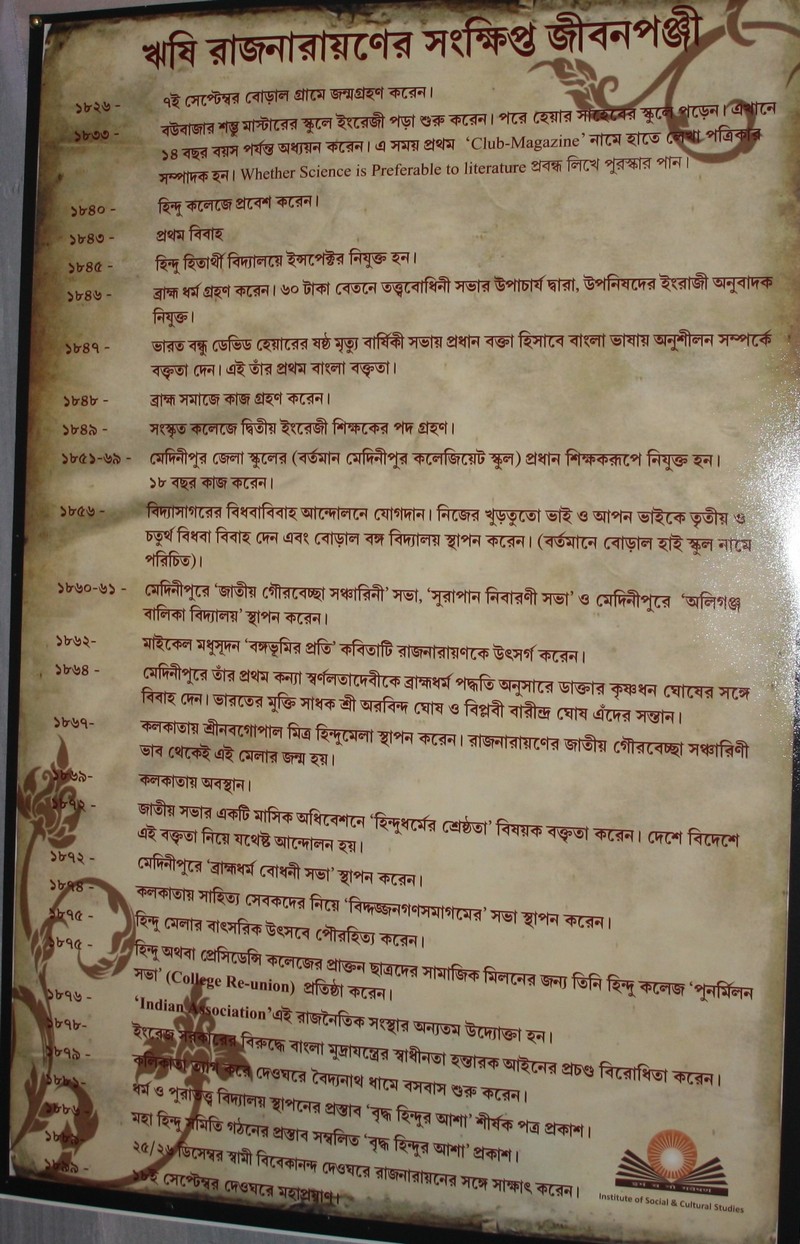 ঋষি রাজনারায়ণের সংক্ষিপ্ত জীবনপঞ্জী
১৮২৬ - ৭ই সেপ্টেম্বর বোড়াল গ্রামে জন্মগ্রহণ করেন।
১৮৩৩ - বউবাজার শম্ভু মাস্টারের স্কুলে ইংরেজী পড়া শুরু করেন। পরে হেয়ার সাহেবের স্কুলে পড়েন। এখানে
১৪ বছর বয়স পর্যন্ত অধ্যয়ন করেন। এ সময় প্রথম ‘Club-Magazine’ নামে হাতে লেখা পত্রিকার
সম্পাদক হন। Whether Science is Preferable to literature প্রবন্ধ লিখে পুরস্কার পান।
১৮৪০ - হিন্দু কলেজে প্রবেশ করেন।
১৮৪৩ - প্রথম বিবাহ
১৮৪৫ - হিন্দু হিতার্থী বিদ্যালয়ে ইন্সপেক্টর নিযুক্ত হন।
১৮৪৬ - ব্রাহ্ম ধর্ম গ্রহণ করেন। ৬০ টাকা বেতনে তত্ত্ববোধিনী সভার উপাচার্য দ্বারা, উপনিষদের ইংরাজী অনুবাদক
নিযুক্ত।
১৮৪৭ - ভারত বন্ধু ডেভিড হেয়ারের ষষ্ঠ মৃত্যু বার্ষিকী সভায় প্রধান বক্তা হিসাবে বাংলা ভাষায় অনুশীলন সম্পর্কে
বক্তৃতা দেন। এই তাঁর প্রথম বাংলা বক্তৃতা।
১৮৪৮ - ব্রাহ্ম সমাজে কাজ গ্রহণ করেন।
১৮৪৯ - সংস্কৃত কলেজে দ্বিতীয় ইংরেজী শিক্ষকের পদ গ্রহণ।
১৮৫১-৬৯ - মেদিনীপুর জেলা স্কুলের (বর্তমান মেদিনীপুর কলেজিয়েট স্কুল) প্রধান শিক্ষকরূপে নিযুক্ত হন।
১৮ বছর কাজ করেন।
১৮৫৬ - বিদ্যাসাগরের বিধবাবিবাহ আন্দোলনে যোগদান। নিজের খুড়তুতো ভাই ও আপন ভাইকে তৃতীয় ও
চতুর্থ বিধবা বিবাহ দেন এবং বোড়াল বঙ্গ বিদ্যালয় স্থাপন করেন। (বর্তমানে বোড়াল হাই স্কুল নামে
পরিচিত)।
১৮৬০-৬১ - মেদিনীপুরে ‘জাতীয় গৌরবেচ্ছা সঞ্চারিনী’ সভা, ‘সুরাপান নিবারণী সভা’ ও মেদিনীপুরে ‘অলিগঞ্জ
বালিকা বিদ্যালয়’ স্থাপন করেন।
১৮৬২- মাইকেল মধুসূদন ‘বঙ্গভূমির প্রতি’ কবিতাটি রাজনারায়ণকে উৎসর্গ করেন।
১৮৬৪ - মেদিনীপুরে তাঁর প্রথম কন্যা স্বর্ণলতাদেবীকে ব্রাহ্মধর্ম পদ্ধতি অনুসারে ডাক্তার কৃষ্ণধন ঘোষের সঙ্গে
বিবাহ দেন। ভারতের মুক্তি সাধক শ্রী অরবিন্দ ঘোষ ও বিপ্লবী বারীন্দ্র ঘোষ এঁদের সন্তান।
১৮৬৭- কলকাতায় শ্রীনবগোপাল মিত্র হিন্দুমেলা স্থাপন করেন। রাজনারায়ণের জাতীয় গৌরবেচ্ছা সঞ্চারিণী
ভাব থেকেই এই মেলার জন্ম হয়।
১৮৬৯- কলকাতায় অবস্থান।
১৮৭২ - জাতীয় সভার একটি মাসিক অধিবেশনে ‘হিন্দুধর্মের শ্রেষ্ঠতা’ বিষয়ক বক্তৃতা করেন। দেশে বিদেশে
এই বক্তৃতা নিয়ে যথেষ্ট আন্দোলন হয়।
১৮৭২ - মেদিনীপুরে ‘ব্রাহ্মধর্ম বোধনী সভা’ স্থাপন করেন।
১৮৭৪ - কলকাতায় সাহিত্য সেবকদের নিয়ে ‘বিদ্দজ্জনগণসমাগমের’ সভা স্থাপন করেন।
১৮৭৫ - হিন্দু মেলার বাৎসরিক উৎসবে পৌরহিত্য করেন।
১৮৭৫ - হিন্দু অথবা প্রেসিডেন্সি কলেজের প্রাক্তন ছাত্রদের সামাজিক মিলনের জন্য তিনি হিন্দু কলেজ ‘পুনর্মিলন
সভা’ (College Re-union) প্রতিষ্ঠা করেন।
১৮৭৬ - ‘Indian Association’এই রাজনৈতিক সংস্থার অন্যতম উদ্যোক্তা হন।
১৮৭৮- ইংরেজ সরকারের বিরুদ্ধে বাংলা মুদ্রাযন্ত্রের স্বাধীনতা হন্তারক আইনের প্রচণ্ড বিরোধিতা করেন।
১৮৭৯ - কলিকাতা ত্যাগ করে দেওঘরে বৈদ্যনাথ ধামে বসবাস শুরু করেন।
ধর্ম ও পুরাতত্ত্ব বিদ্যালয় স্থাপনের প্রস্তাব ‘বৃদ্ধ হিন্দুর আশা’ শীর্ষক পত্র প্রকাশ।
১৮৮৬ - মহা হিন্দু সমিতি গঠনের প্রস্তাব সম্বলিত ‘বৃদ্ধ হিন্দুর আশা’ প্রকাশ।
২৫/২৬ ডিসেম্বর স্বামী বিবেকানন্দ দেওঘরে রাজনারায়নের সঙ্গে সাক্ষাৎ করেন।
১৮৯৯ - ১৮ই সেপ্টেম্বর দেওঘরে মহাপ্রয়াণ।
Institute of Social & Cultural Studies